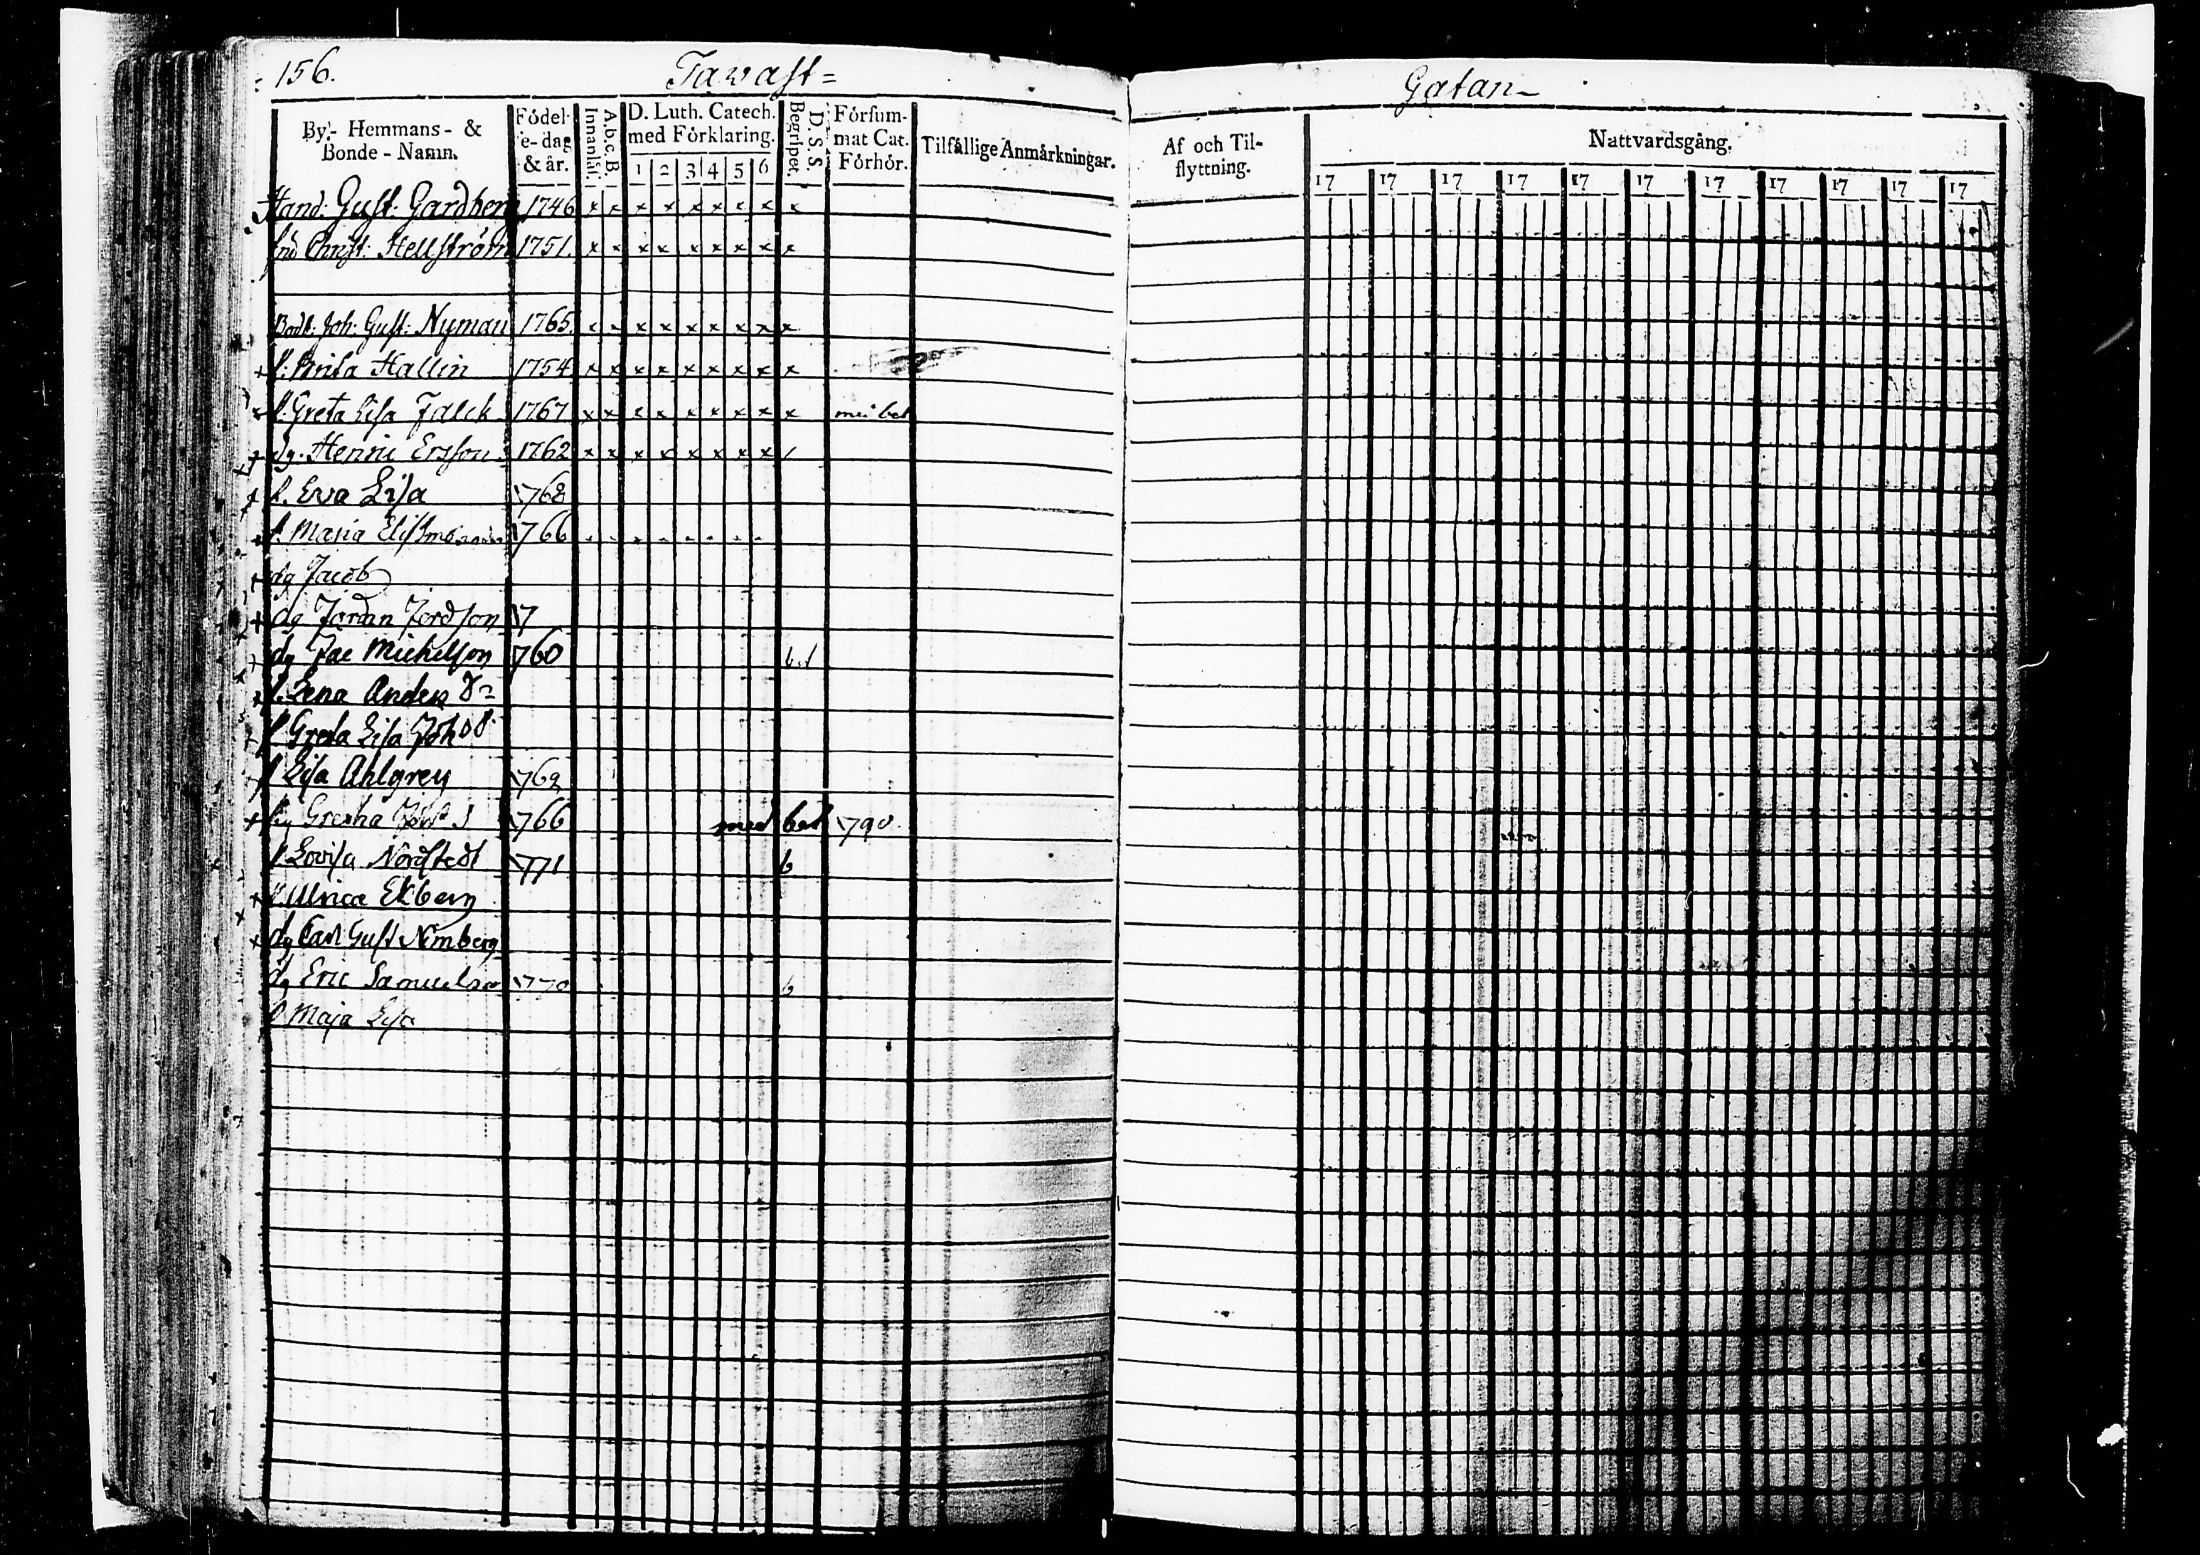 156. Tawast= Gatan
By- Hemmans- & Bonde-Namn.
Födel- e-dag & år.
Innanläs.
A.b.c.B.
D. Luth. Catech. med Förklaring.
1 2 3 4 5 6
Begripet.
D. S. S.
Försum- mat Cat. Förhör.
Tilfällige Anmärkningar.
Af och Til- flyttning.
Nattvardsgång.
17 17 17 17 17 17 17 17 17 17 17
Hand: Gust: Gardberg 1746 x x x x x x x x x
Christ: Hellström 1751. x x x x x x x x x
Bodk: Joh: Gust: Nyman 1765 x x x x x x x x x
p: Brita Hallin 1754 x x x x x x x x x
p: Greta Lisa Falck 1767 x x x x x x x x x
dg. Henric Ersson 1762 x x x x x x x x
p. Eva Lisa 1768
p. Maria 1766
dg Jacob
dg Jöran 17
dg Jac Michelson 760
p. Lena Anders Dr
p Greta Lisa Joh
p Lisa Ahlgren 1769
Gretha 1766 med bet 1790
p Lovisa Nordstedt 1771 b
p Ulrica Ekberg
dg Carl Gust Nimberg
dg Eric Samuelso 1770 b
p Maja Lisa